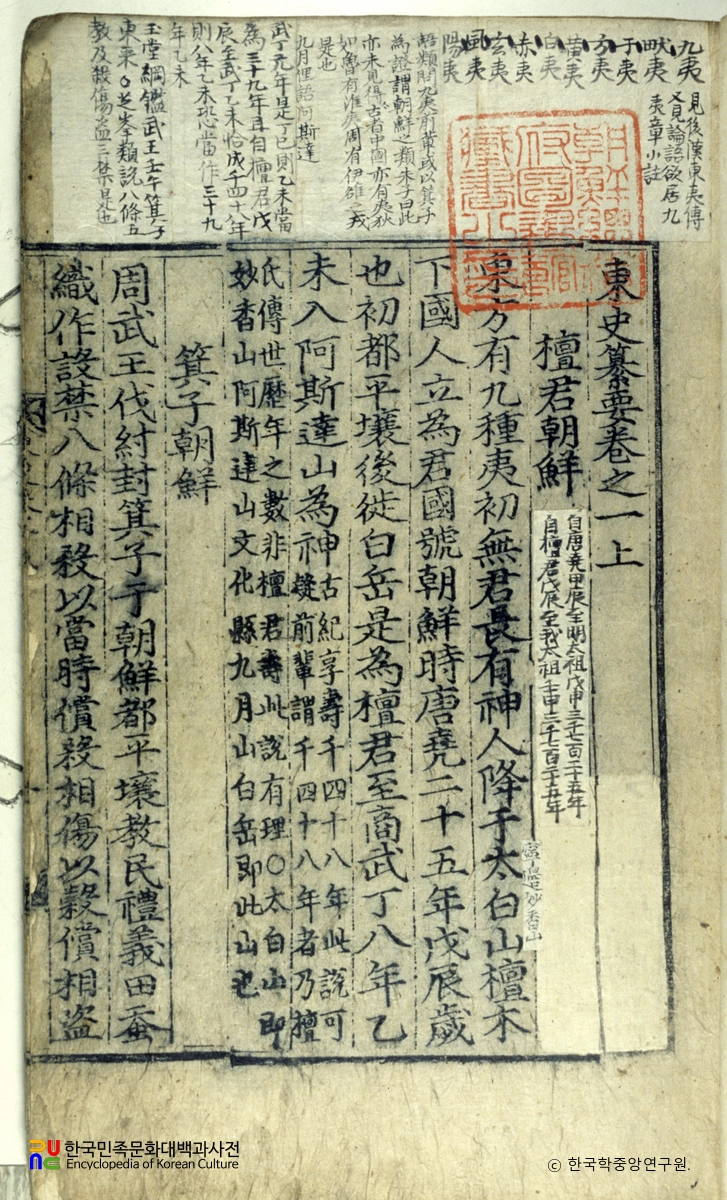 九夷
畎夷
于夷
方夷
黃夷
白夷
赤夷
玄夷
風夷
陽夷
見後漢東夷傳
又見論語欲居九
夷章小註
語類問九夷前輩或以箕子
為證謂朝鮮之類朱子曰此
亦未見得古者中國亦有夷狄
如魯有淮夷周有伊雒之戎
是也
九月俚語阿斯達
武丁元年是丁巳則乙未當
為三十九年且自檀君戊
辰至武丁乙未恰成千四十八年
則八年乙未恐當作三十九
年乙未
玉堂綱鑑武王壬午箕子
東來○芝峯類說八條五
敎及殺傷盜三禁是也
東史纂要卷之一上
檀君朝鮮
自唐堯甲辰至明太祖戊申三千七百二十五年
自檀君戊辰至我太祖壬申三千七百二十五年
東方有九種夷初無君長有神人降于太白山檀木
寧邊妙香山
下國人立為君國號朝鮮時唐堯二十五年戊辰歲
也初都平壤後徙白岳是為檀君至商武丁八年乙
未入阿斯達山為神古紀享壽千四十八年此說可
疑前輩謂千四十八年者乃檀
氏傳世歷年之數非檀君壽此說有理○太白山即
妙香山阿斯達山文化縣九月山白岳即此山也
箕子朝鮮
周武王伐紂封箕子于朝鮮都平壤教民禮義田蚕
織作設禁八條相殺以當時償殺相傷以穀償相盜
한국민족문화대백과사전
Encyclopedia of Korean Culture
© 한국학중앙연구원.